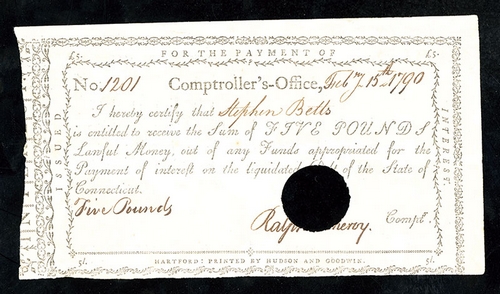 £5: FOR THE PAYMENT OF £5:
No. 1201 Comptroller's-Office, Feby 15th 1790
I hereby certify that Stephen Betts
is entitled to receive the Sum of FIVE POUNDS
Lawful Money, out of any Funds appropriated for the
Payment of interest on the liquidated of the State of
Connecticut.
Five Pounds
Ralph Compt.
5l. HARTFORD: PRINTED BY HUDSON AND GOODWIN. 5l.
ISSUED
INTEREST.